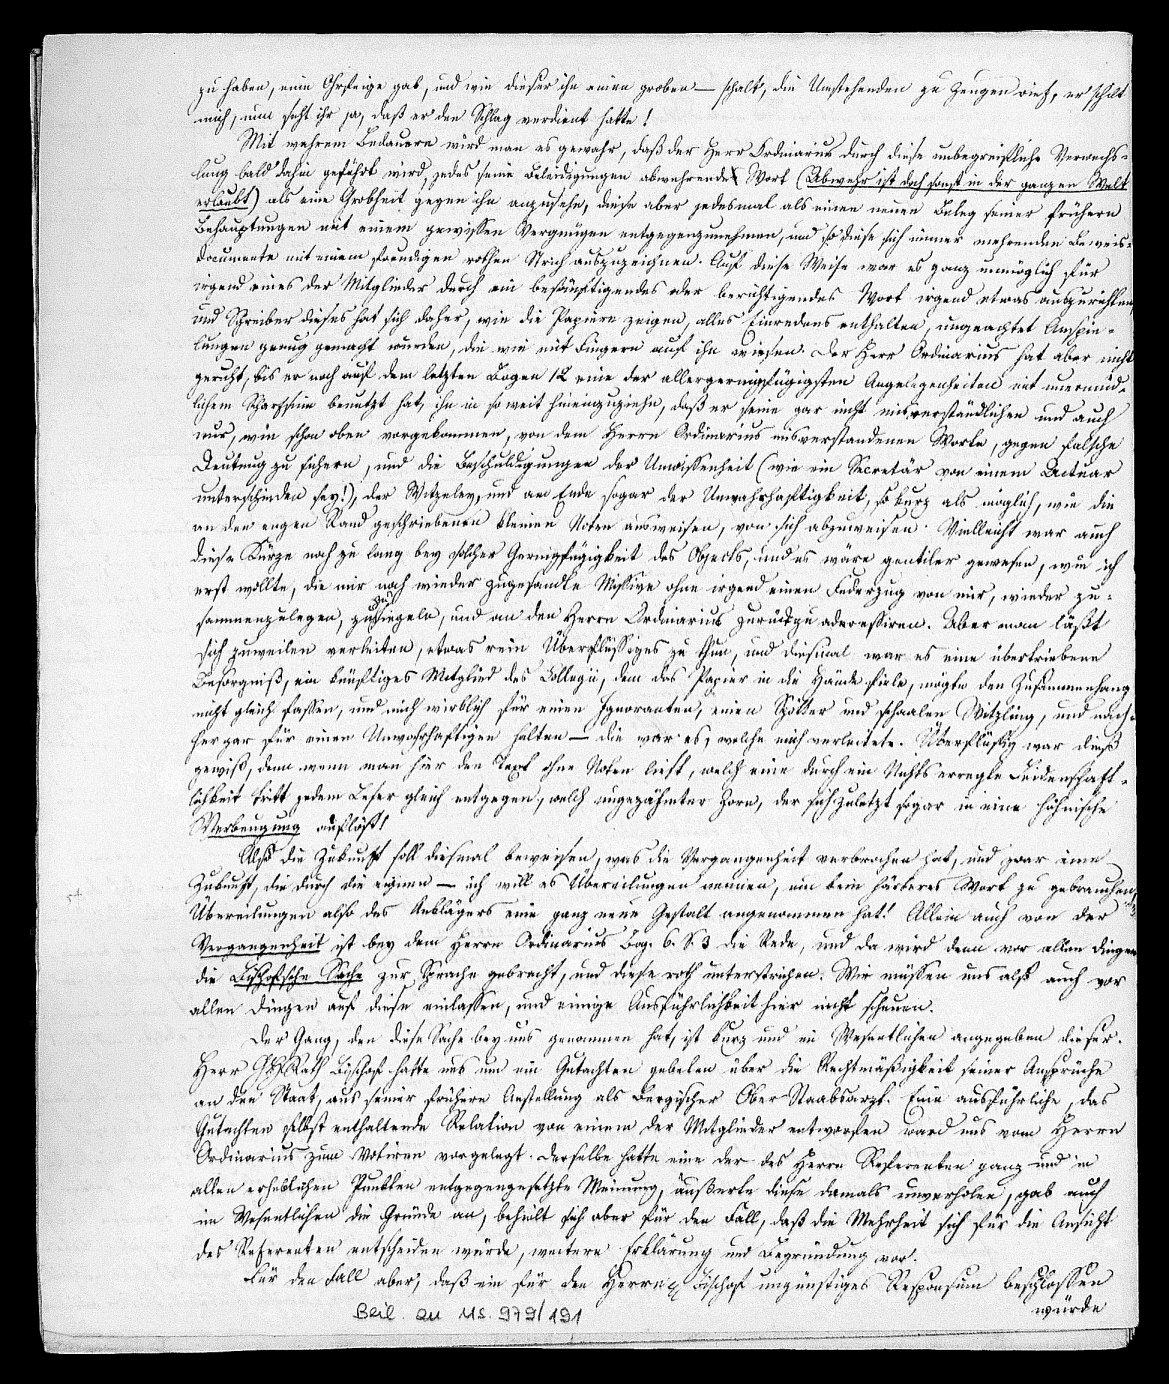 zu haben, eine Ohrfeige gab, und wie dieser ihn einen groben — schalt, die Umstehenden zu Zeugen rief, er schilt
mich, nun seht ihr ja, daß er den Schlag verdient hatte!
Mit wahrem Bedauern wird man es gewahr, daß der Herr Ordinarius durch diese unbegreifliche Verwechs-
lung bald dahin geführt wird, jedes seine Beleidigungen abwehrende Wort (Abwehr ist doch sonst in der ganzen Welt
erlaubt) als eine Grobheit gegen ihn anzusehn, diese aber jedesmal als einen neuen Beleg seiner frühern
Behauptungen mit einem gewissen Vergnügen entgegenzunehmen, und so diese sich immer mehrenden Beweis-
documente mit einem freudigen rothen Strich auszuzeichnen. Auf diese Weise war es ganz unmöglich für
irgend eines der Mitglieder durch ein besänftigendes oder berichtigendes Wort irgend etwas auszurichten,
und Schreiber dieses hat sich daher, wie die Papiere zeigen, alles Einredens enthalten, ungeachtet Anspie-
lungen genug gemacht wurden, die wie mit Fingern auf ihn wiesen. Der Herr Ordinarius hat aber nicht
geruht, bis er noch auf dem letzten Bogen 12 eine der allergeringfügigsten Angelegenheiten mit unermüd-
lichem Scharfsinn benutzt hat, ihn in so weit hineinzuziehn, daß er seine gar nicht misverständlichen und auch
nur, wie schon oben vorgekommen, von dem Herrn Ordinarius misverstandenen Worte, gegen falsche
Deutung zu sichern, und die Beschuldigungen der Unwissenheit (wie ein Secretär von einem Actuar
unterschieden sey!), der Witzeley, und am Ende sogar der Unwahrhaftigkeit, so kurz als möglich, wie die
an den engen Rand geschriebenen kleinen Noten ausweisen, von sich abzuweisen. Vielleicht war auch
diese Kürze noch zu lang bey solcher Geringfügigkeit des Objects, und es wäre gentiler gewesen, wie ich
erst wollte, die mir noch wieder zugesandte Missive ohne irgend einen Federzug von mir, wieder zu-
sammenzulegen, zuzusiegeln, und an den Herrn Ordinarius zurückzuadressiren. Aber man läßt
sich zuweilen verleiten, etwas rein Überflüssiges zu thun, und diesmal war es eine übertriebene
Besorgniß, ein künftiges Mitglied des Collegii, dem das Papier in die Hände fiele, mögte den Zusammenhang
nicht gleich fassen, und mich wirklich für einen Ignoranten, einen Spötter und schaalen Witzling, und nach-
her gar für einen Unwahrhaftigen halten — die war es, welche mich verleitete. Überflüßig war dieß
gewiß, denn wenn man hier den Text ohne Noten liest, welch eine durch ein Nichts erregte Leidenschaft-
lichkeit tritt jedem Leser gleich entgegen, welch ungezähmter Zorn, der sich zuletzt sogar in eine höhnische
Verbeugung auflöst!
Also die Zukunft soll diesmal beweisen, was die Vergangenheit verbrochen hat, und zwar eine
Zukunft, die durch die eignen — ich will es Übereilungen nennen, um kein härteres Wort zu gebrauchen,
Übereilungen also des Anklägers eine ganz neue Gestalt angenommen hat! Allein auch von der
Vergangenheit ist bey dem Herrn Ordinarius Bog. 6. S. 3 die Rede, und da wird denn vor allen Dingen
die Bischofsche Sache zur Sprache gebracht, und diese roth unterstrichen. Wir müssen uns also auch vor
allen Dingen auf diese einlassen, und einige Ausführlichkeit hier nicht scheuen.
Der Gang, den diese Sache bey uns genommen hat, ist kurz und im Wesentlichen angegeben dieser.
Herr HofRath Bischof hatte uns um ein Gutachten gebeten über die Rechtmäßigkeit seiner Ansprüche
an den Staat, aus seiner frühern Anstellung als Bergischer Ober Staabsarzt. Eine ausführliche, das
Gutachten selbst enthaltende Relation von einem der Mitglieder entworfen ward uns vom Herrn
Ordinarius zum Votiren vorgelegt. Derselbe hatte eine der des Herrn Referenten ganz und in
allen erheblichen Punkten entgegengesetzte Meinung, äußerte diese damals unverholen, gab auch
im Wesentlichen die Gründe an, behielt sich aber für den Fall, daß die Mehrheit sich für die Ansicht
des Referenten entscheiden würde, weitere Erklärung und Begründung vor.
Für den Fall aber, daß ein für den Herrn Bischof ungünstiges Responsum beschlossen
würde
Beil. zu Ms. 979/191